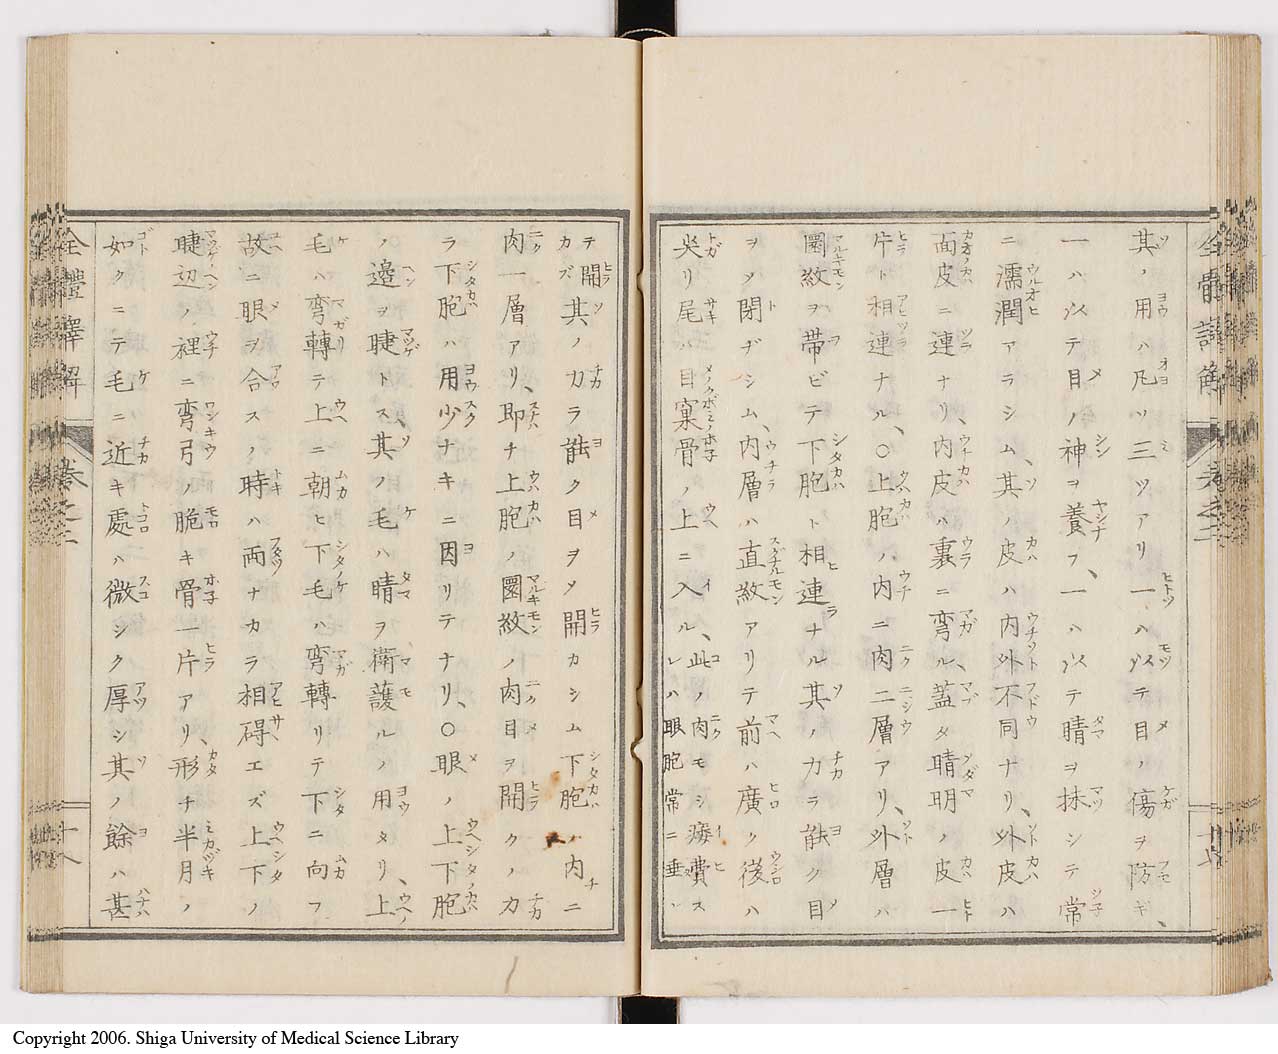 其ノ用ハ凡ツ三ツアリ一ハ以テ目ノ傷ヲ防ギ、
一ハ以テ目ノ神ヲ養フ、一ハ以テ睛ヲ抹シテ常
ニ濡潤アラシム、其ノ皮ハ内外不同ナリ、外皮ハ
面皮ニ連ナリ、内皮ハ裏ニ弯ル、蓋タ睛明ノ皮一
片ト相連ナル、〇上胞ハ内ニ肉二層アリ、外層ハ
圏紋ヲ帯ビテ下胞ト相連ナル其ノカラ能ク目
ヲメ閉ヂシム、内層ハ直紋アリテ前ハ廣ク後ハ
尖リ尾ハ目窠骨ノ上ニ入ル、此ノ肉モシ癈費スレハ眼胞常ニ垂レ
テ開カズ其ノカラ能ク目ヲメ開カシム下胞ハ内ニ
肉一層アリ、即チ上胞ノ圏紋ノ肉目ヲ開クノカ
ラ下胞ハ用少ナキニ因リテナリ、〇眼ノ上下胞
ノ邉ヲ睫トス、其ノ毛ハ睛ヲ衛護ルノ用タリ、上
毛ハ弯轉テ上ニ朝ヒ下毛ハ弯轉リテ下ニ向フ
故ニ眼ヲ合スノ時ハ両ナカラ相碍エズ上下ノ
睫辺ノ裡ニ弯弓ノ脆キ骨一片アリ、形チ半月ノ
如クニテ毛ニ近キ處ハ微シク厚シ其ノ餘ハ甚
全體譯解
巻之三
十八
Copyright 2006. Shiga University of Medical Science Library